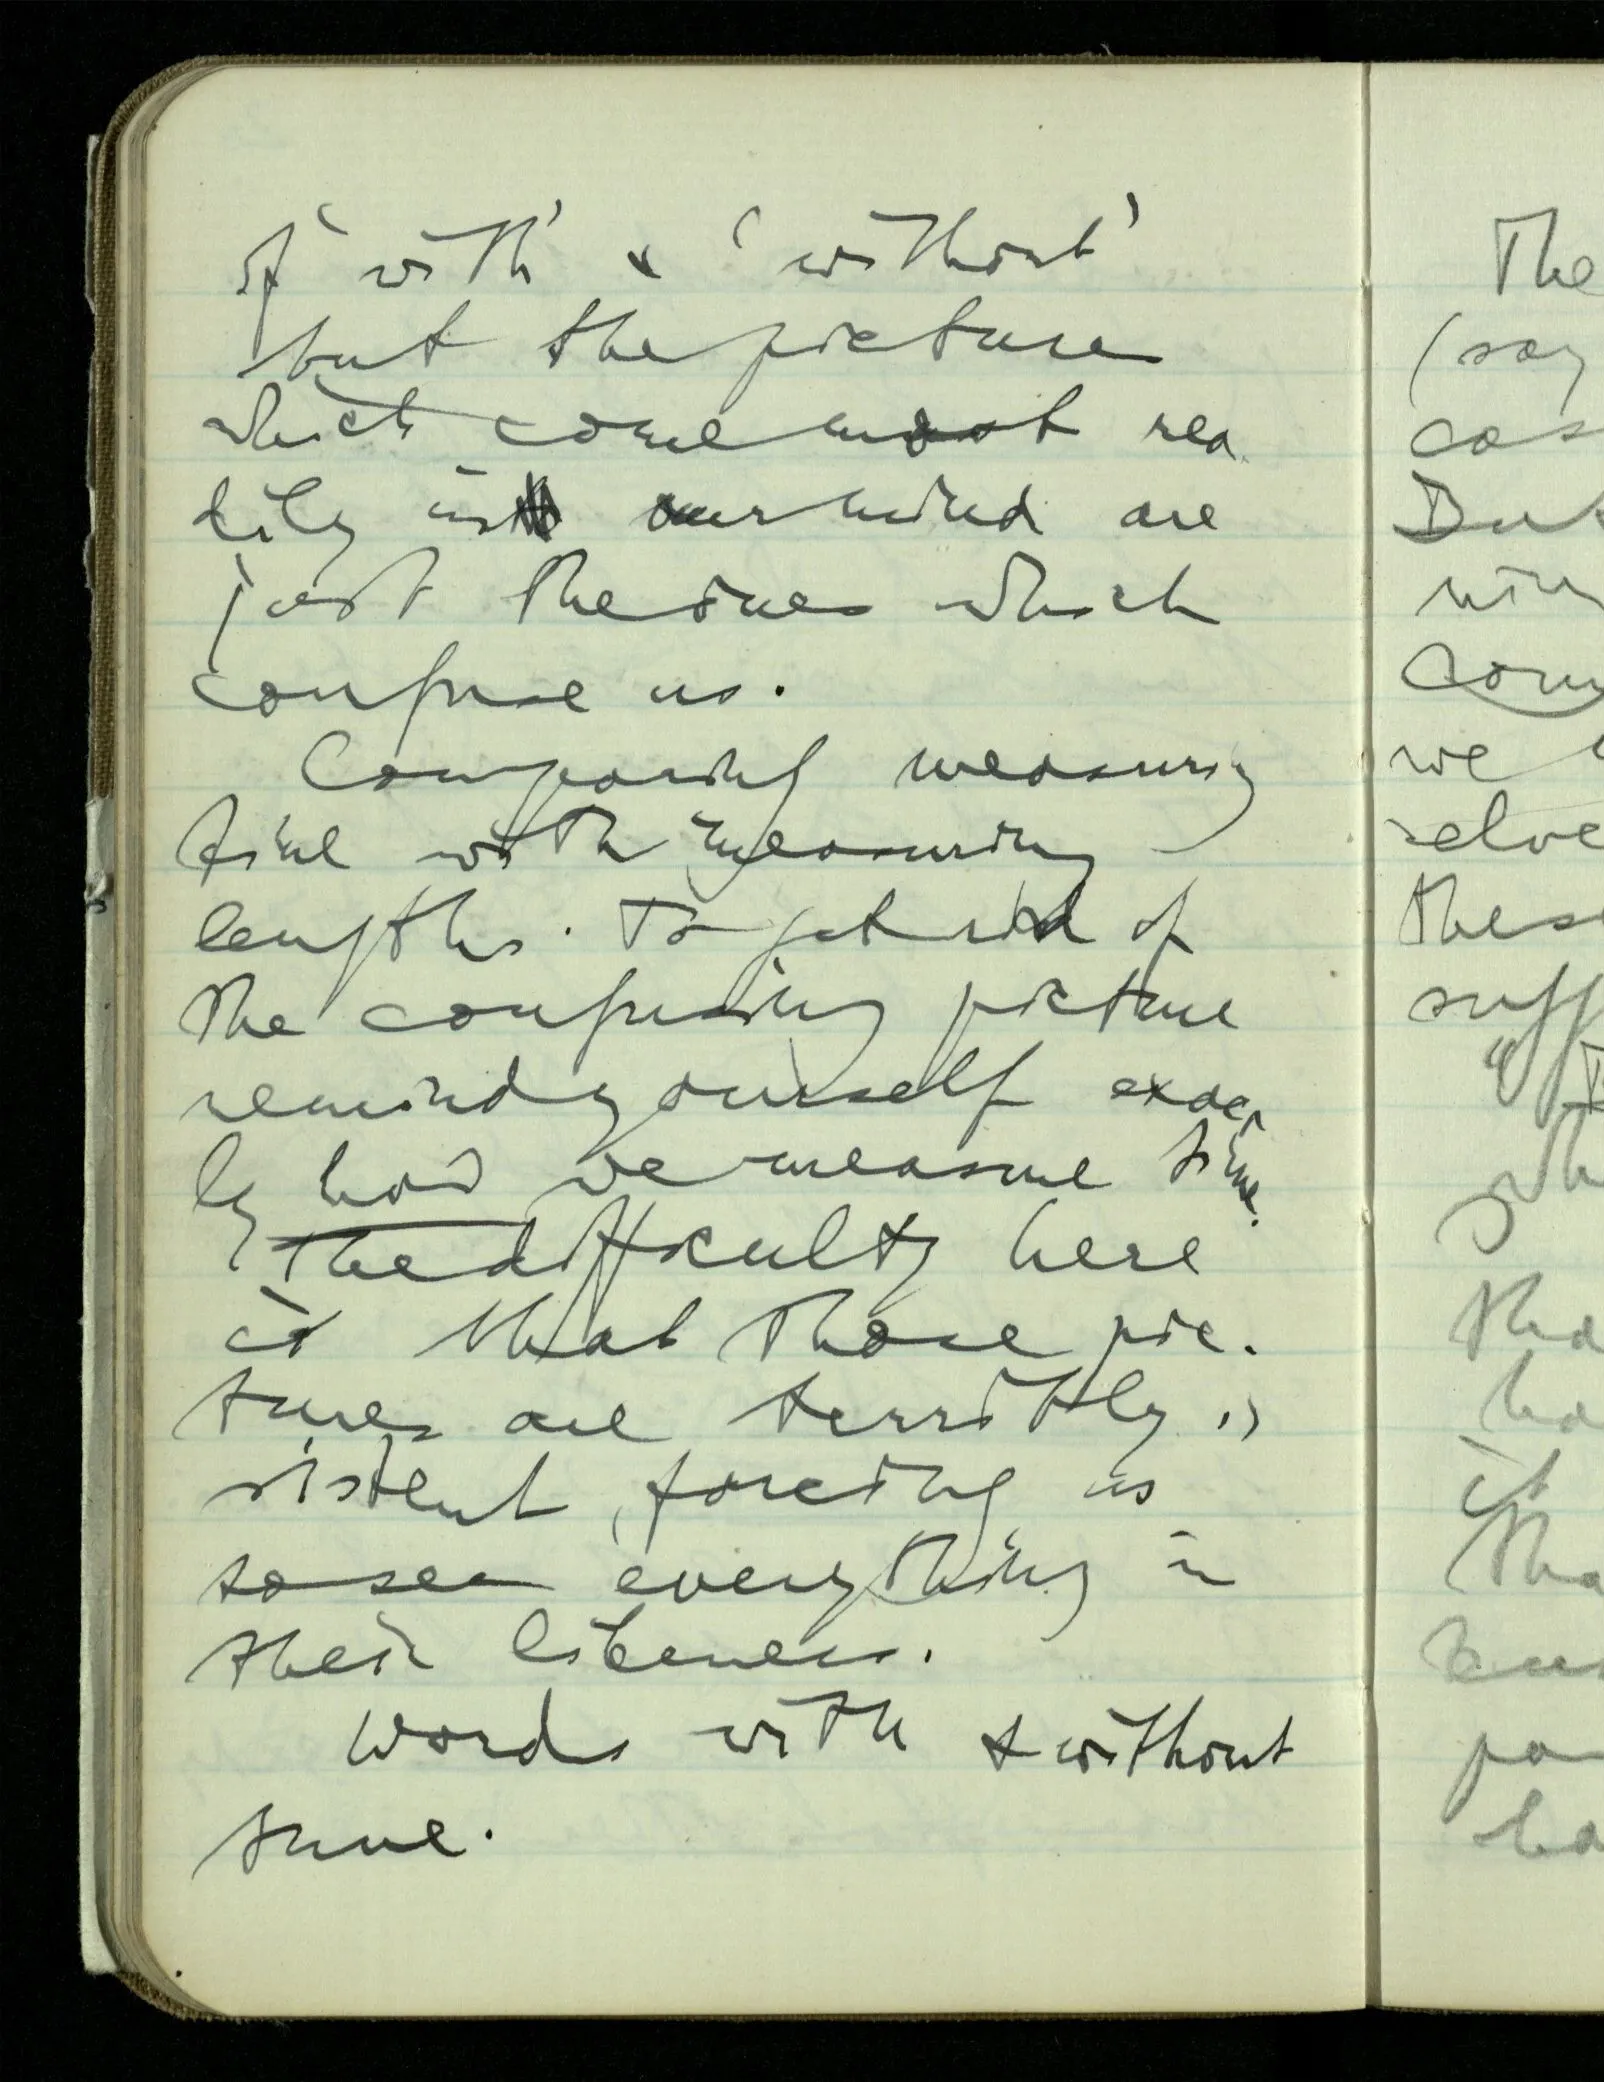 of 'with' & 'without'
but the picture
which come most rea
dily in our mind are
just the ones which
confuse us.
Comparing measuring
time with measuring
lengths. To get rid of
the confusing picture
remind yourself exact
ly how we measure time.
The difficulty here
is that those pic-
tures are terribly in
sistent, forcing us
to see everything in
their likeness.
Words with & without
tune.
The
(say
cas
But
we
selve
these
suff
"
it